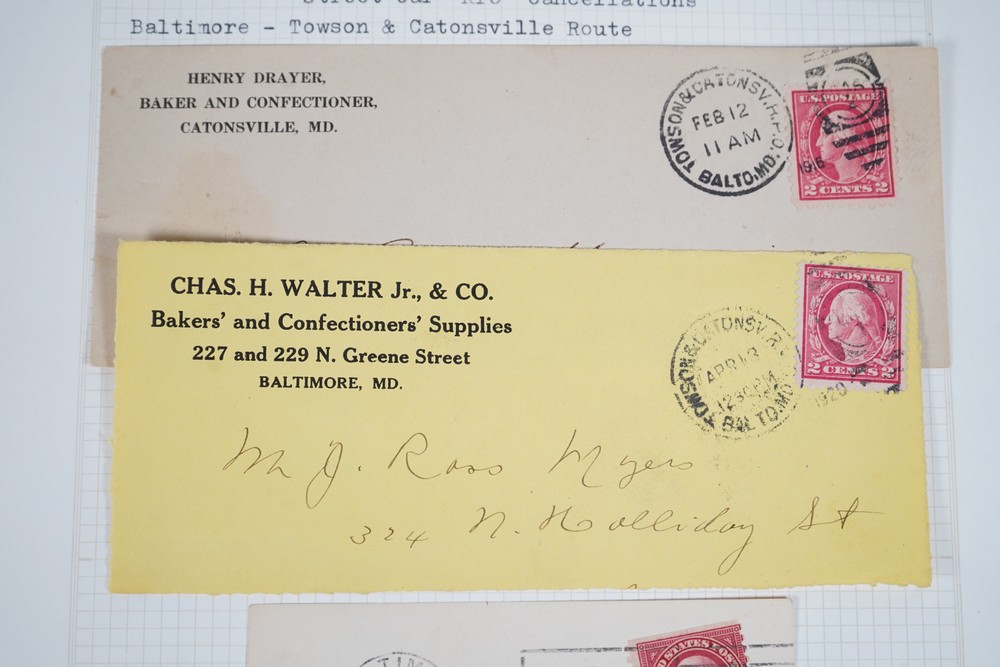 Street Car "RPO" Cancellations
Baltimore - Towson & Catonsville Route
HENRY DRAYER,
BAKER AND CONFECTIONER,
CATONSVILLE, MD.
TOWSON & CATONSV. R.P.O.
FEB 12
11 AM
BALTO, MD.
1916
U.S. POSTAGE
2 CENTS 2
CHAS. H. WALTER Jr., & CO.
Bakers' and Confectioners' Supplies
227 and 229 N. Greene Street
BALTIMORE, MD.
TOWSON & CATONSV. R.
APR 13
1230 PM
BALTO, MD.
1920
U.S. POSTAGE
2 CENTS 2
Mr J. Ross Myers
324 N. Holliday St
TIM
D STATES POS